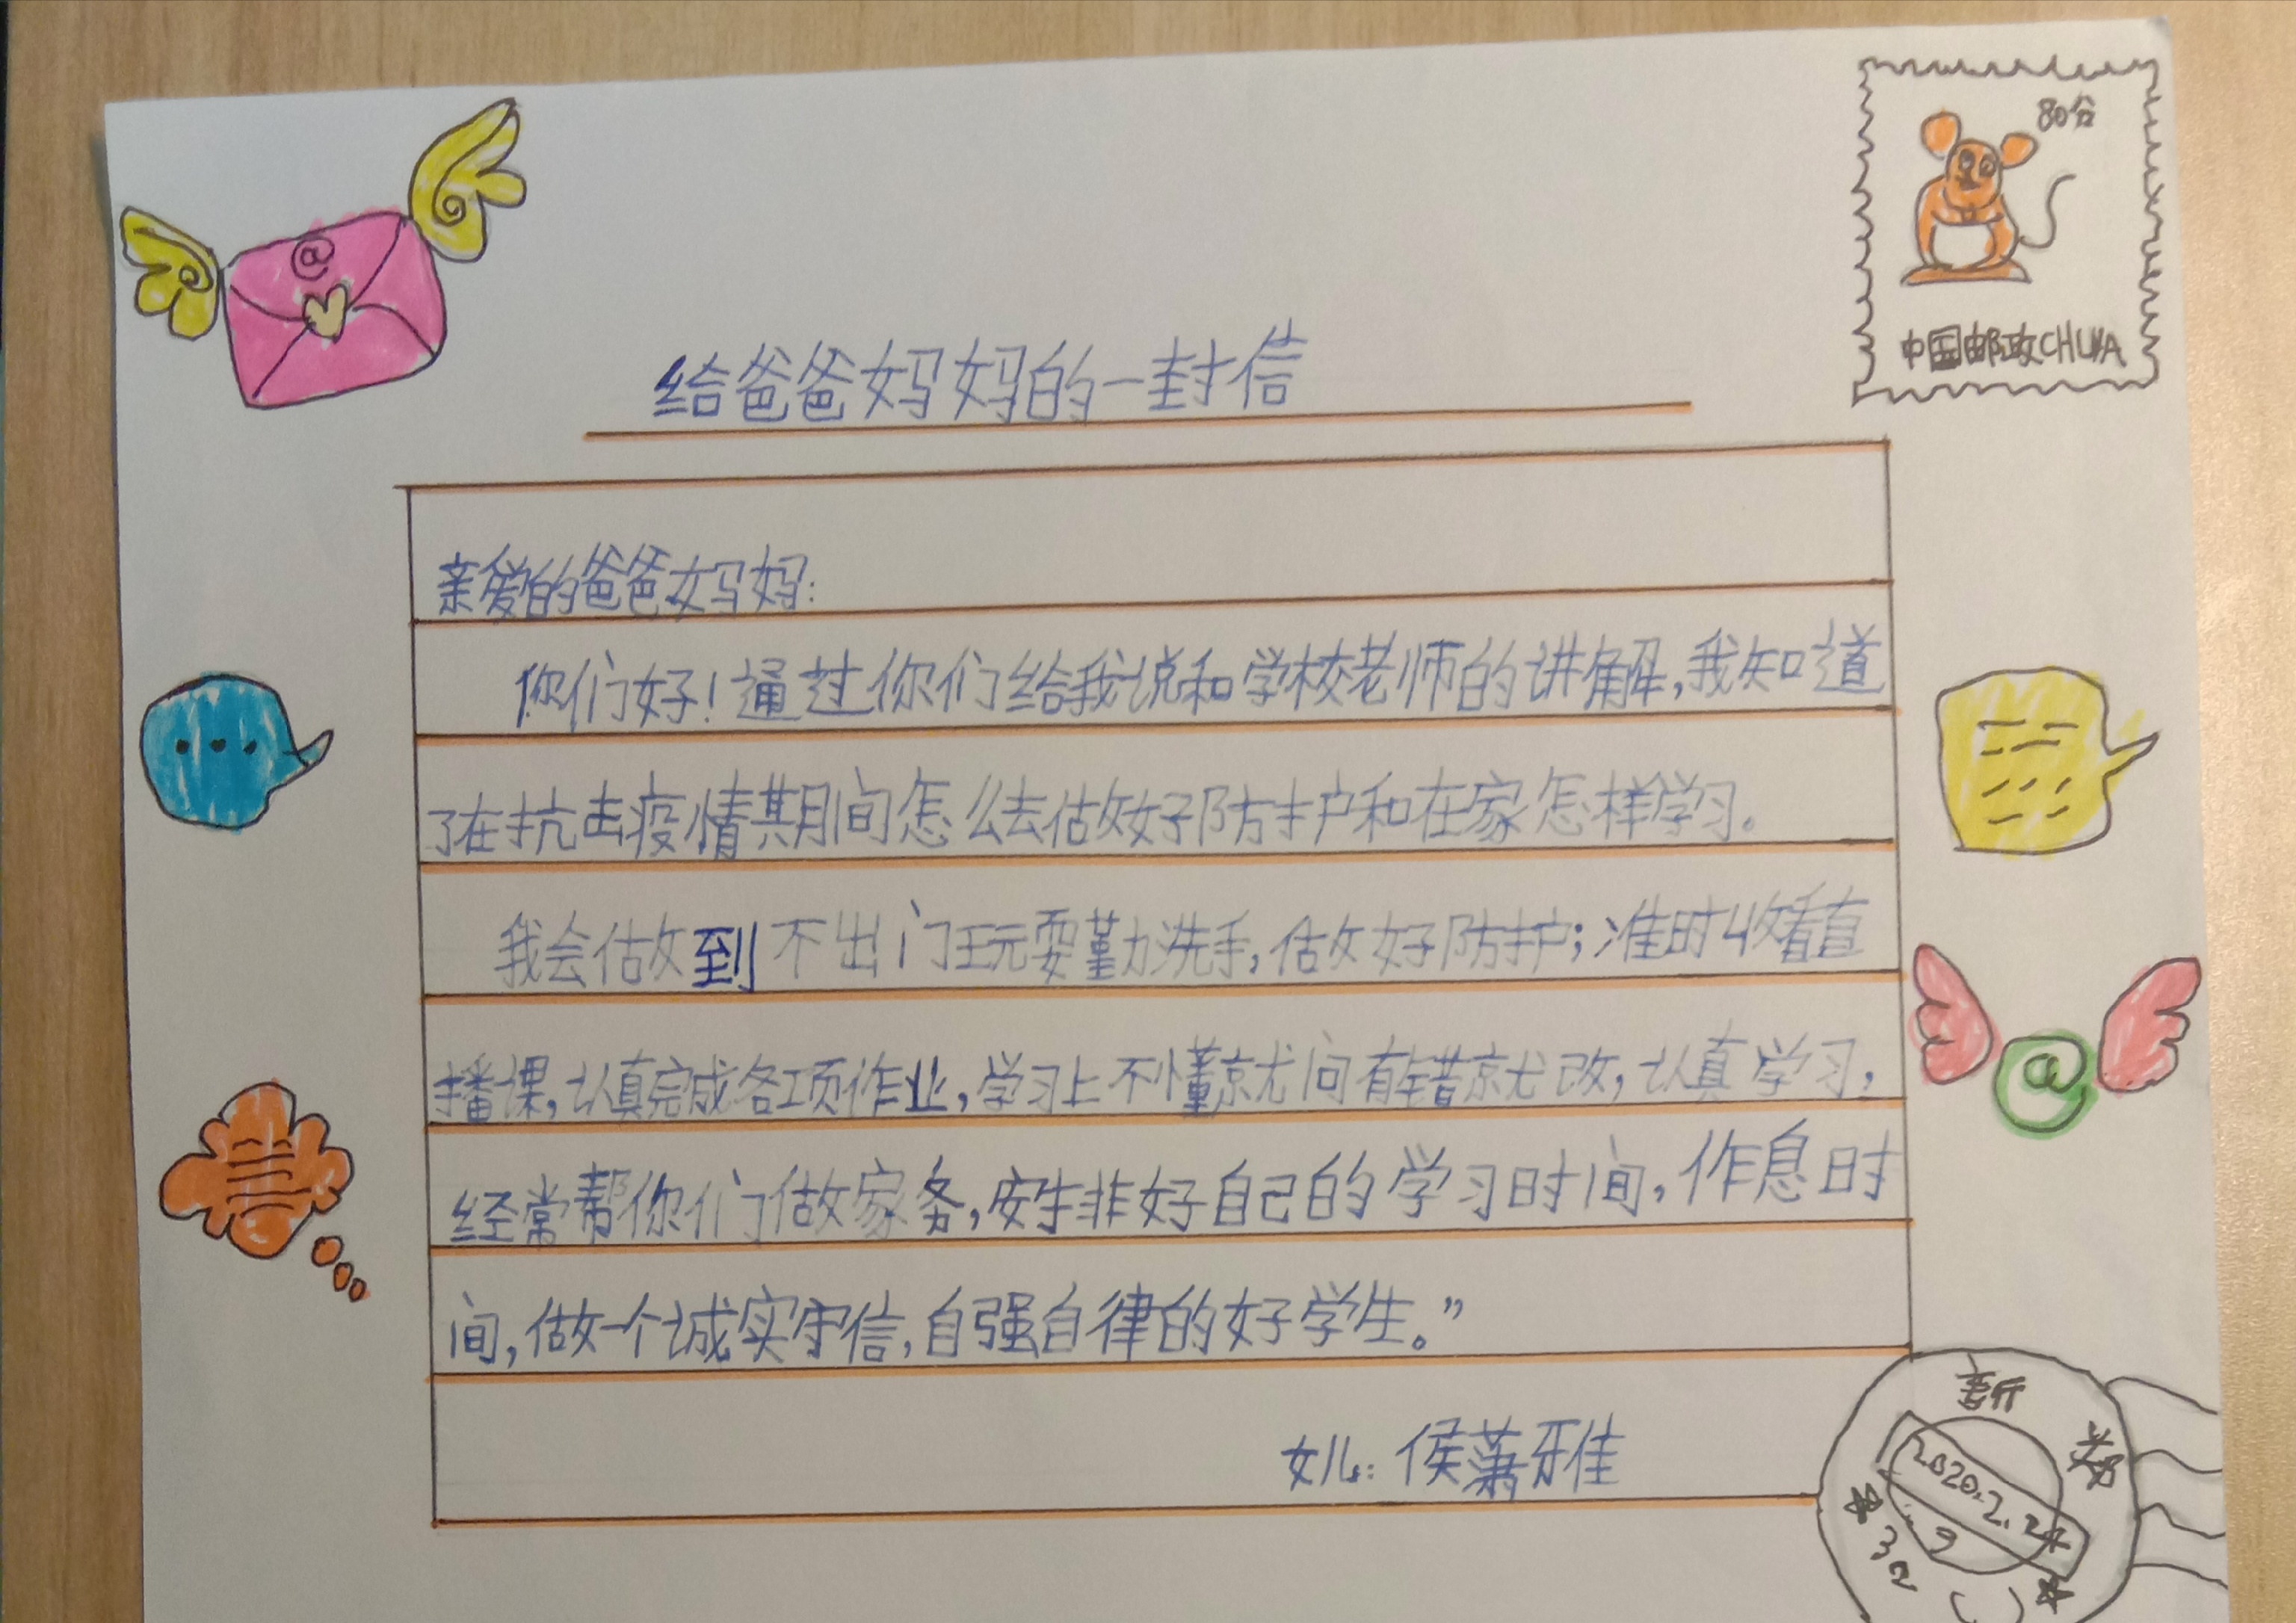 80分
中国邮政CHINA
给爸爸妈妈的一封信
亲爱的爸爸妈妈:
你们好!通过你们给我说和学校老师的讲解,我知道
了在抗击疫情期间怎么去做好防护和在家怎样学习。
我会做到不出门玩耍勤洗手,做好防护;准时收看直
播课,认真完成各项作业,学习上不懂就问有错就改,认真学习,
经常帮你们做家务,安排好自己的学习时间,作息时
间,做一个诚实守信,自强自律的好学生。”
女儿:侯萧雅
2020.2.24
9